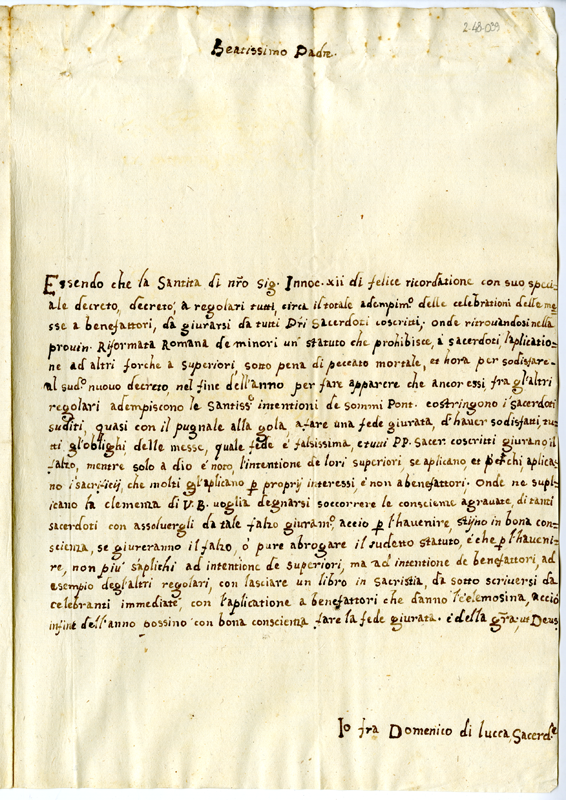 2-48-039
Beatissimo Padre.
Essendo che la Santita di nr̃o Sig. Innoc. xii di felice ricordatione con suo speci-
ale decreto, decretò, a regolari tutti, circa il totale adempim.º delle celebrationi delle me-
sse a benefattori, da giurarsi da tutti Dr̃i Sacerdoti coscritti; onde ritrovandosi nella
provin. Riformata Romana de minori un statuto che prohibisce, à sacerdoti, l'aplicatio-
ne ad altri forche à superiori, sotto pena di peccato mortale, et hora per sodisfare
al sud.º nuovo decreto nel fine dell'anno per fare apparere che ancor essi, fra gl'altri
regolari adempiscono le Santiss.e intentioni de sommi Pont. costringono i sacerdoti
suditi, quasi con il pugnale alla gola a fare una fede giurata, d'haver sodisfatti, tut-
ti gl'oblighi delle messe, quale fede é falsissima, e tutti PP. Sacer. coscritti giurano il
falzo, mentre solo à dio é noto, l'intentione de lori superiori se aplicano, et perchi aplica-
no i sacrificij, che molti gl'aplicano p proprij interessi, é non a benefattori. Onde ne sup-
licano la clemenza di V.B. voglia degnarsi soccorrere le conscienze agravate, di tanti
sacerdoti con assoluergli da tale falzo giuram.º, accio p l'havenire, stijno in bona con-
scienza, se giureranno il falzo, ò pure abrogare il sudetto statuto, é che p l'haveni-
re, non più s'aplichi ad intentione de superiori, ma ad intentione de benefattori, ad
esempio degl'altri regolari, con lasciare un libro in Sacristia, da sotto scriversi da
celebranti immediate, con l'aplicatione a benefattori che danno l'elemosina, acciò
infine dell'anno possino con bona conscienza fare la fede giurata. é della gr̃a, ut Deus
Io fra Domenico di lucca, Sacerd.e